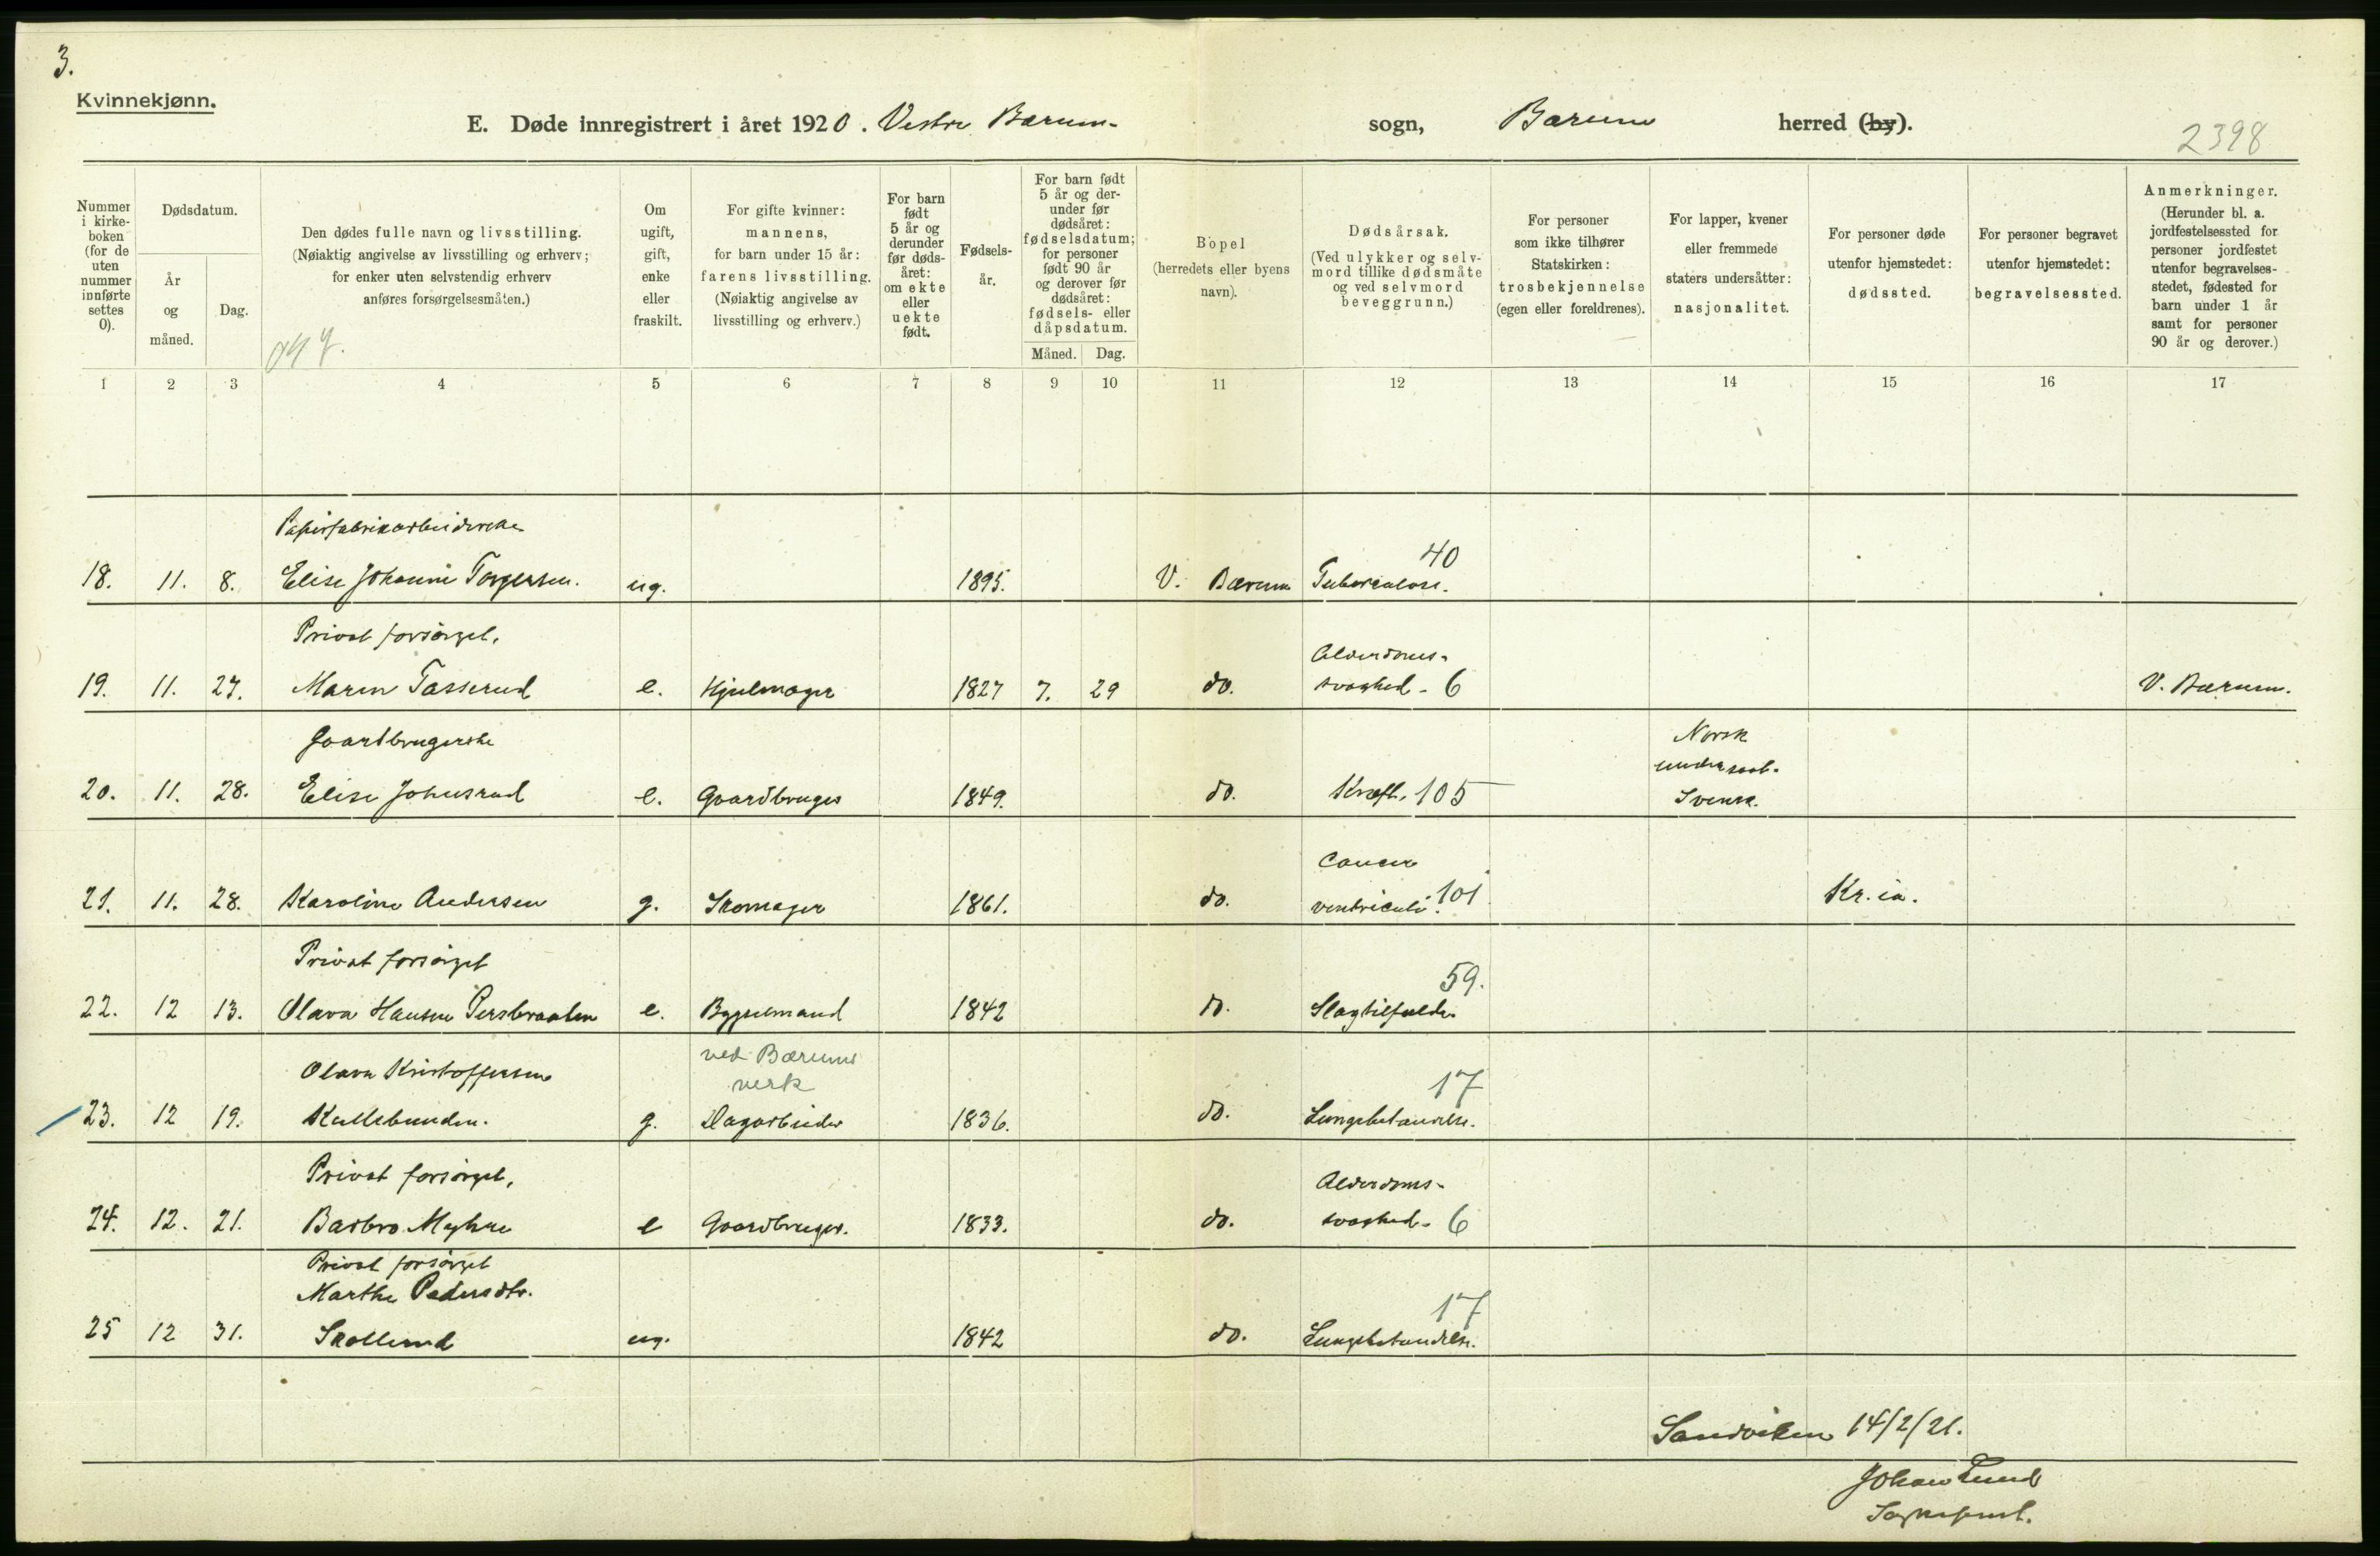 3.
Kvinnekjønn.
E. Døde innregistrert i året 1920. Vestre Bærum sogn, Bærum herred (by).
2398
Nummer i kirke-boken (for de uten nummer innførte settes 0).
Dødsdatum.
År og måned.
Dag.
Den dødes fulle navn og livsstilling.
(Nøiaktig angivelse av livsstilling og erhverv;
for enker uten selvstendig erhverv
anføres forsørgelsesmåten.)
Om ugift, gift, enke eller fraskilt.
For gifte kvinner:
mannens,
for barn under 15 år:
farens livsstilling.
(Nøiaktig angivelse av
livsstilling og erhverv.)
For barn født 5 år og derunder før døds-året: om ekte eller uekte født.
Fødsels-år.
For barn født 5 år og der-under før dødsåret: fødselsdatum; for personer født 90 år og derover før dødsåret: fødsels- eller dåpsdatum.
Måned.
Dag.
Bopel
(herredets eller byens
navn).
Dødsårsak.
(Ved ulykker og selv-
mord tillike dødsmåte
og ved selvmord
beveggrunn.)
For personer
som ikke tilhører
Statskirken:
trosbekjennelse
(egen eller foreldrenes).
For lapper, kvener
eller fremmede
staters undersåtter:
nasjonalitet.
For personer døde
utenfor hjemstedet:
dødssted.
For personer begravet
utenfor hjemstedet:
begravelsessted.
Anmerkninger.
(Herunder bl. a.
jordfestelsessted for
personer jordfestet
utenfor begravelses-
stedet, fødested for
barn under 1 år
samt for personer
90 år og derover.)
1 2 3 4 5 6 7 8 9 10 11 12 13 14 15 16 17
Papirfabrikarbeiderske
40
18. 11. 8. Elise Johanne Torgersen. ug. 1895. V. Bærum Tuberculose.
Privat forsørget.
Alderdoms-
19. 11. 27. Maren Tasserud e. Hjulmager 1827 7. 29 do. svaghed - 6 V. Bærum.
Gaardbrugerske
Norsk
undersaat.
20. 11. 28. Elise Johnsrud e. Gaardbruger 1849. do. Kræft. 105 Svensk.
Cancer
21. 11. 28. Karoline Andersen g. Skomager 1861. do. ventriculi. 101 Kr.ia.
Privat forsørget
59.
22. 12 13. Olava Hansen Persbraaten e. Bygselmand 1842 do. Slagtilfælde.
ved Bærums
verk
Olava Kristoffersen
17
23. 12 19. Kullebunden. g. Dagarbeider 1836. do. Lungebetændelse.
Privat forsørget.
Alderdoms-
24. 12. 21. Barbro Myhre e Gaardbruger. 1833. do. svaghed - 6
Privat forsørget
Marthe Pedersdtr.
17
25 12 31. Skollerud ug. 1842 do. Lungebetændelse.
Sandviken 14/2/21.
Johan Lund
Sogneprest.